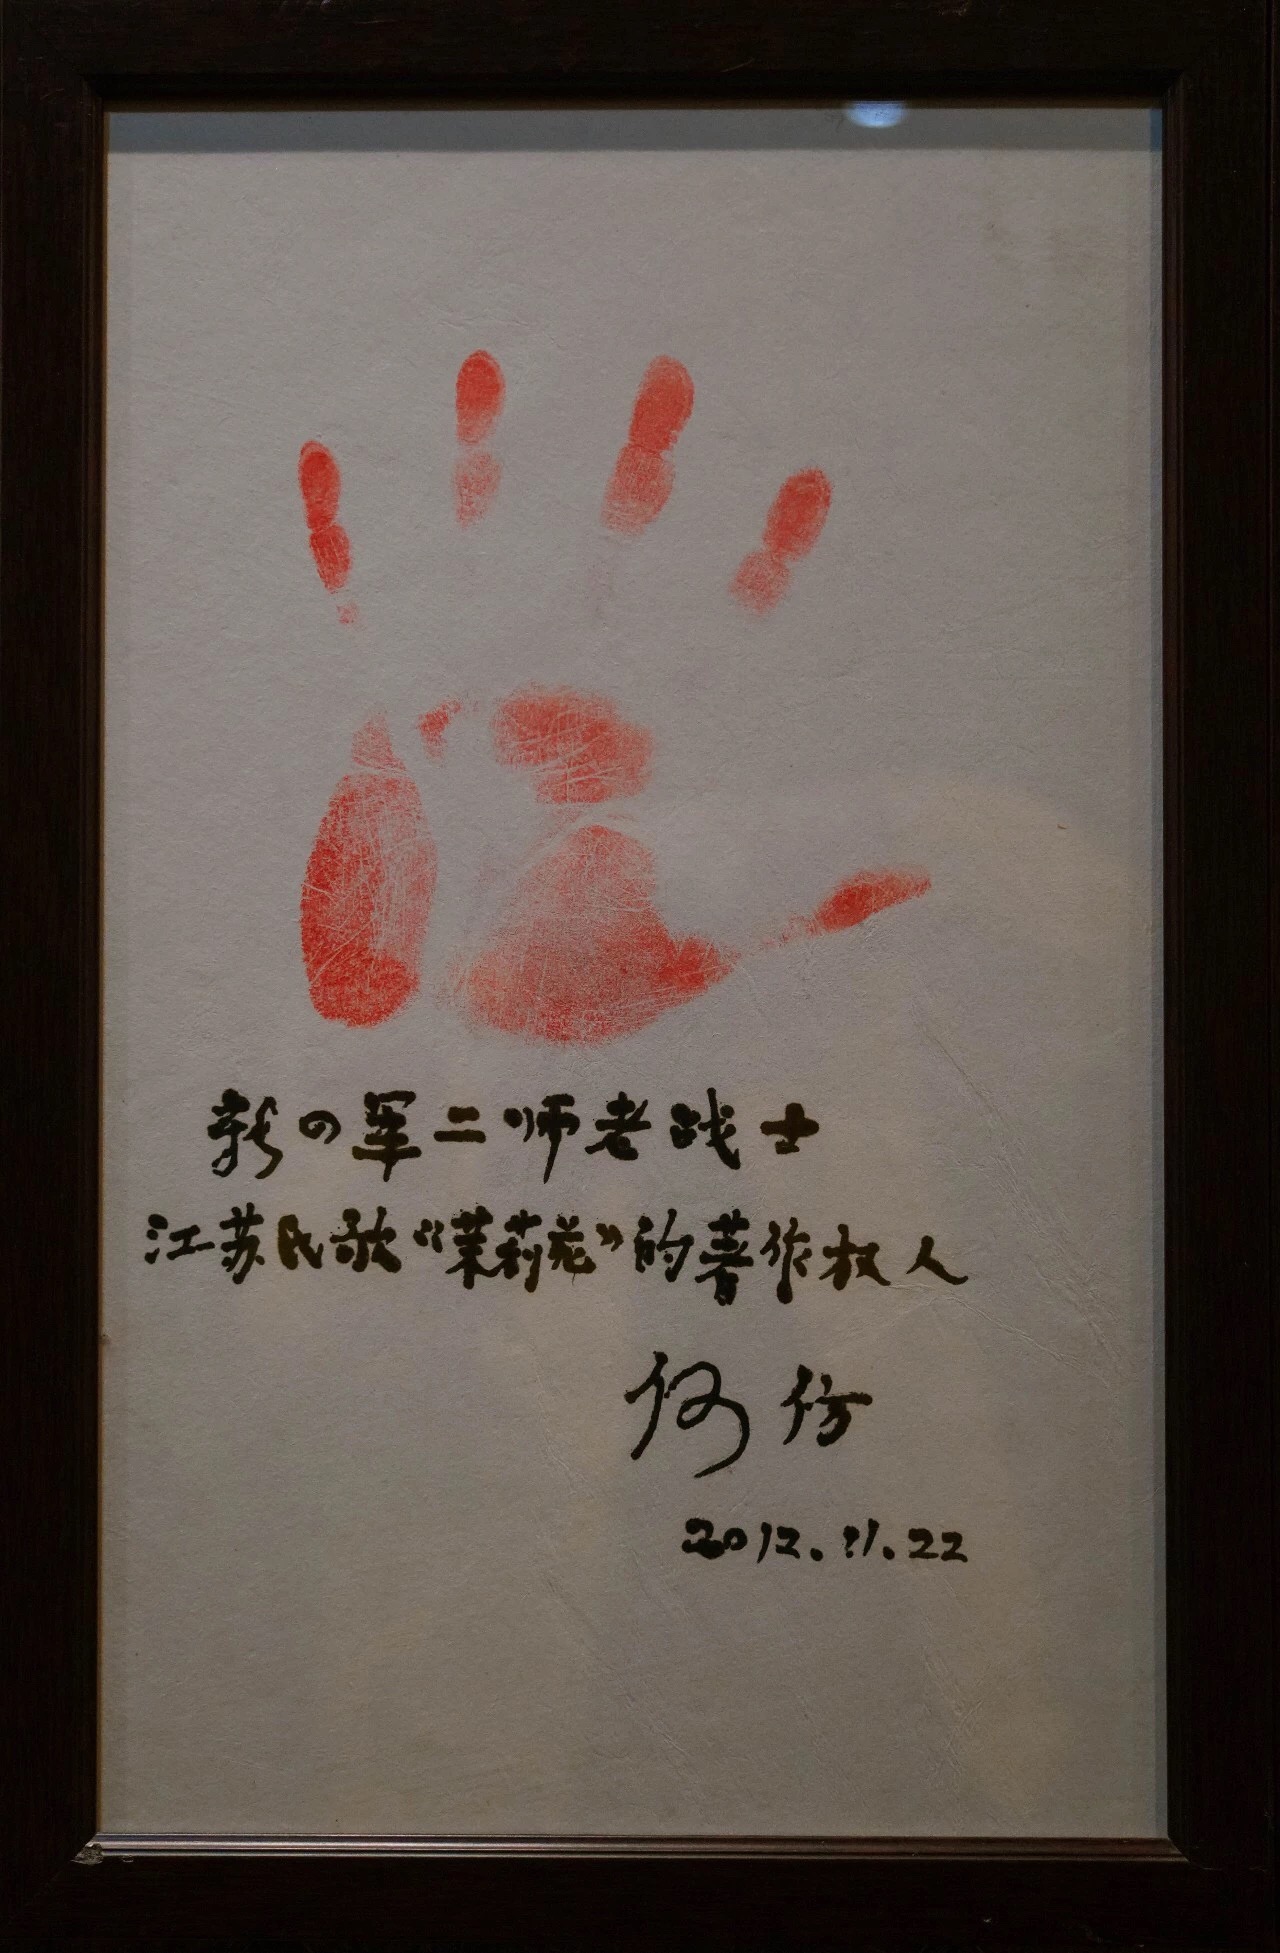 新四军二师老战士
江苏民歌“茉莉花”的著作权人
何仿
2012.11.22